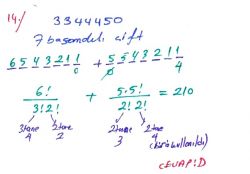 14.) 3344450
7 basamaklı çift
6 5 4 3 2 1 1 + 5 5 4 3 2 1 1
0 0 4
6! / 3! 2! + 5.5! / 2! 2! = 210
3 tane 2 tane 2 tane 2 tane
4 3 4
(biri kullanıldı)
CEVAP: D